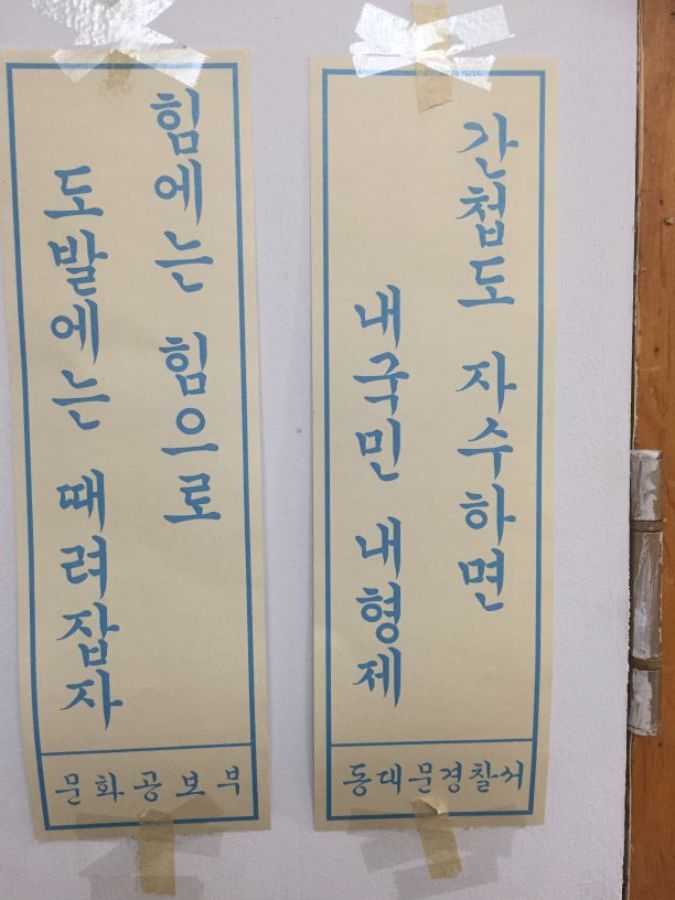 힘에는 힘으로
도발에는 때려잡자
문화공보부
간첩도 자수하면
내국민 내형제
동대문경찰서